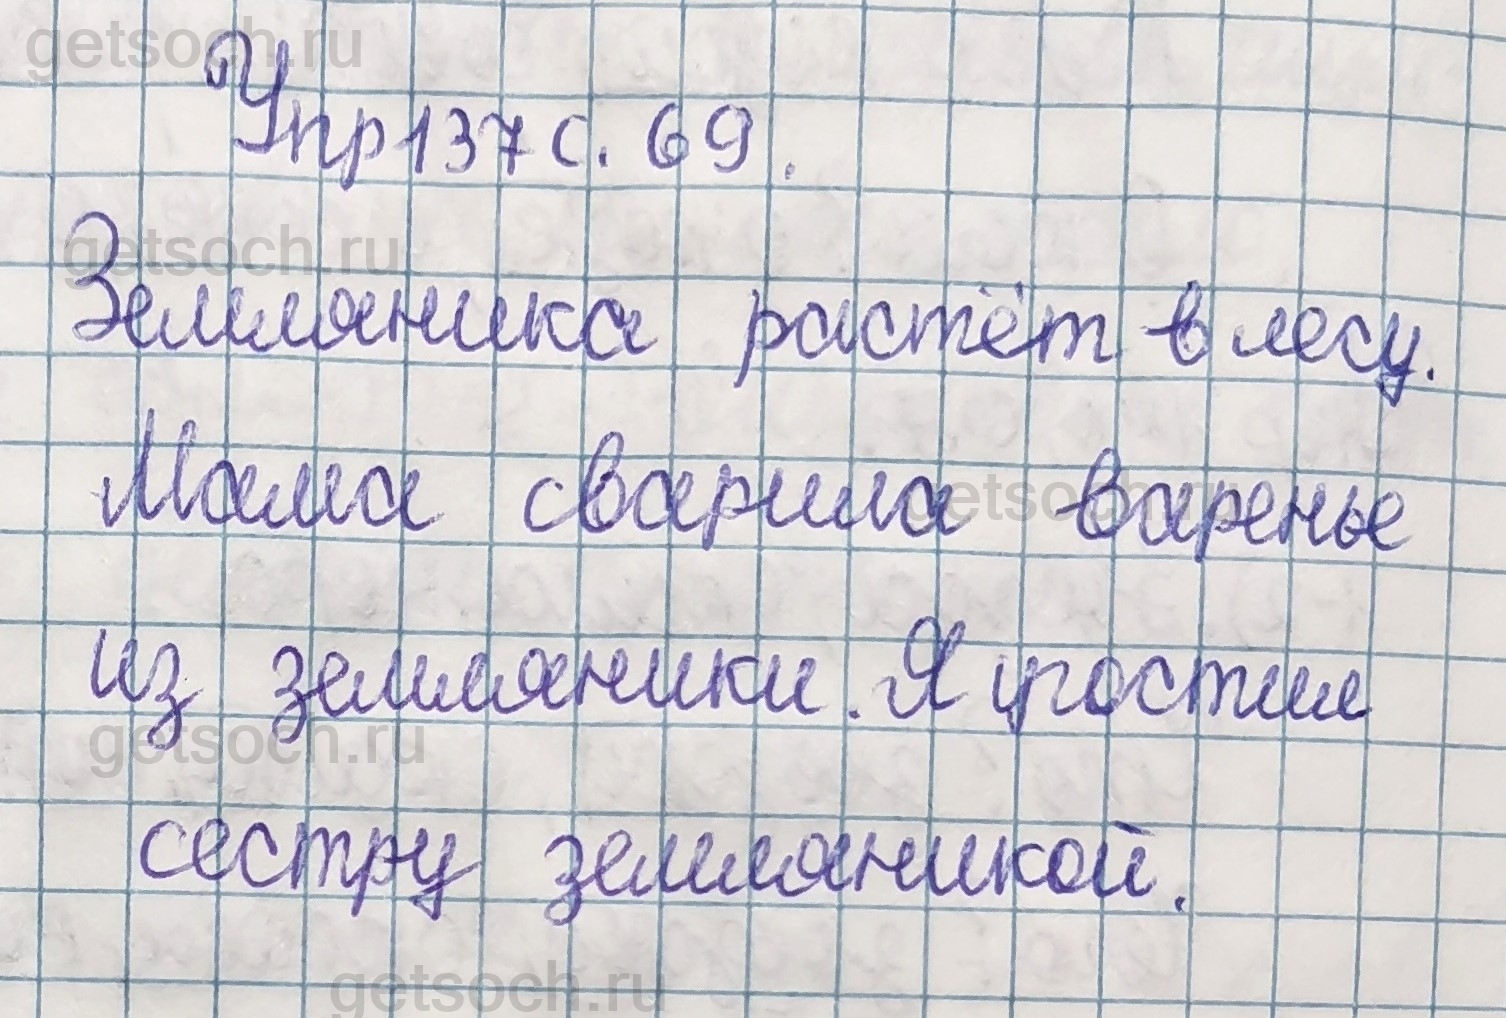 getsoch.ru
Упр 137 с. 69.
getsoch.ru
Земляника растёт в лесу.
Мама сварила варенье
getsoch.ru
из земляники. Я угостил
getsoch.ru
сестру земляникой.
getsoch.ru